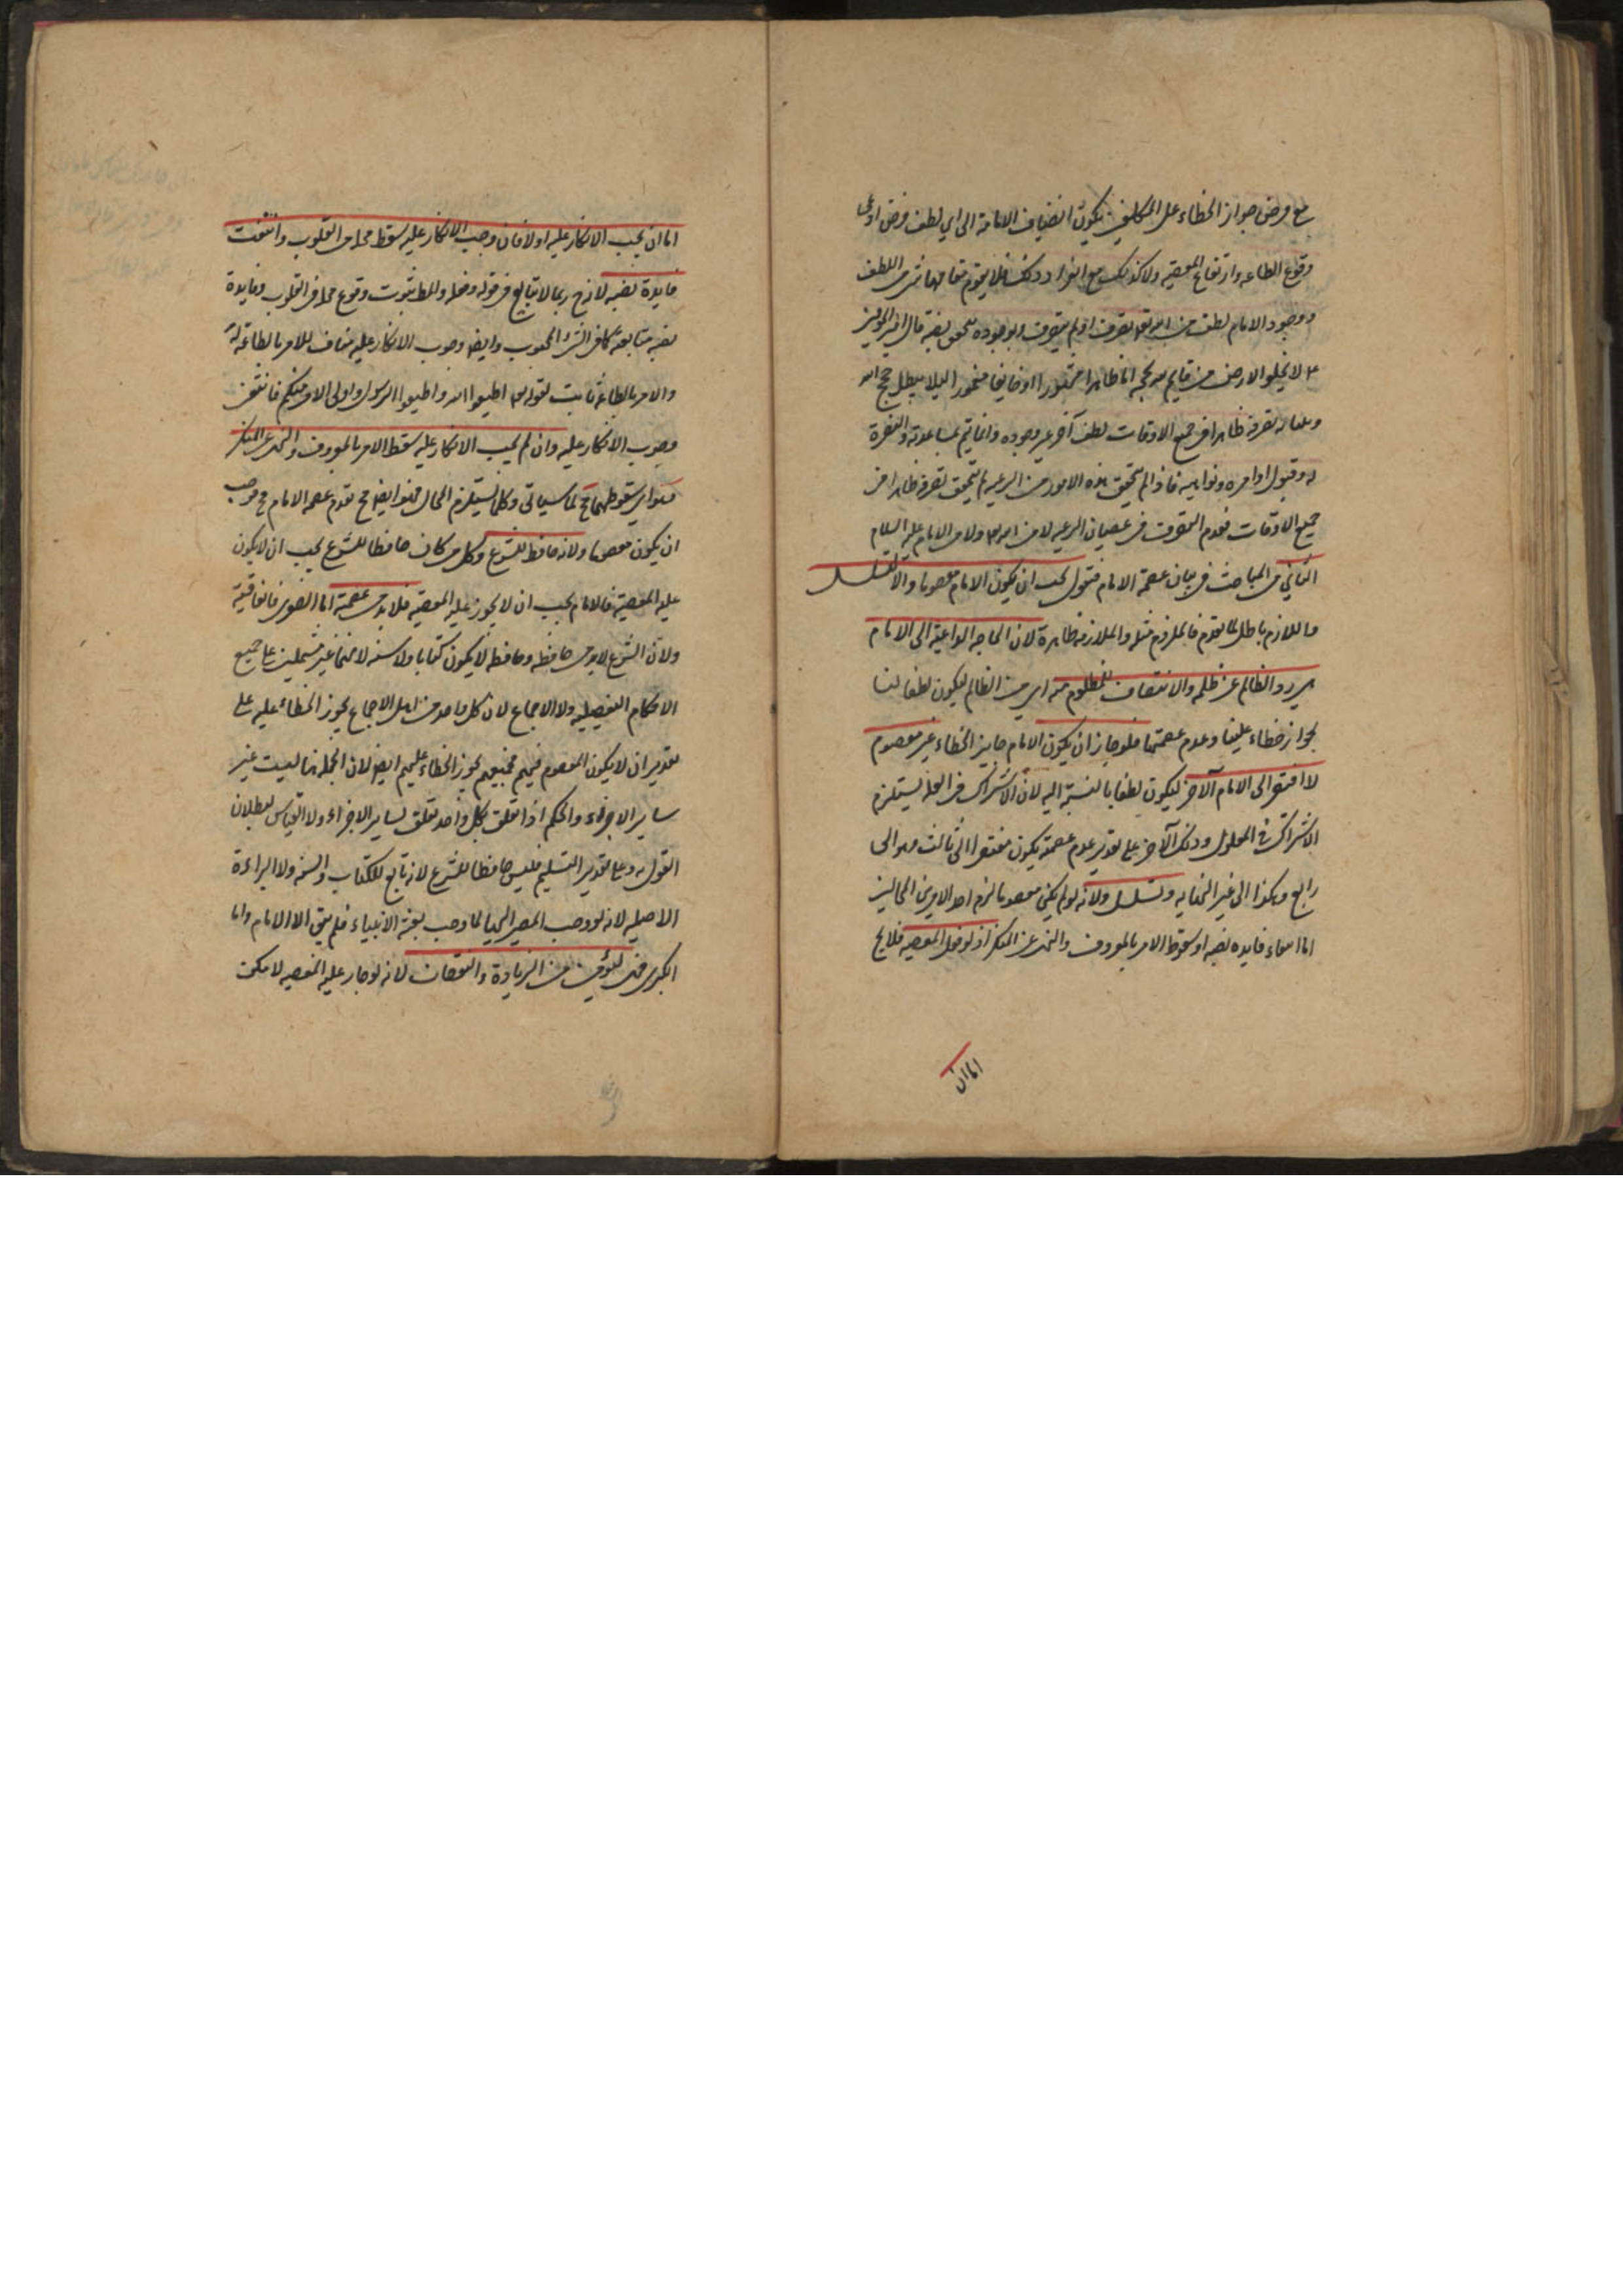 مع فرض جواز الخطاء على المكلفين يكون انضياف الامامة الى اي لطف فرض ادعى
وقوع الطاعه وارتفاع المعصيه ولا كذلك مع انفراد ذلك فلا يقوم مقامها شى من اللطف
ووجود الامام لطف من الله تعه تصرف او لم يتصرف وبوجوده قال امير
لا يخلو الارض من قايم لله بحجه اما ظاهرا مشهورا او خايفا مغمورا ليلا يبطل حجج الله
تصرفه ظاهرا فى جميع الاوقات لطف آخر غير وجوده وانما يتم بمساعدته والنصرة
له وقبول اوامره ونواهيه فاذا لم يتحقق هذه الامور من الرعيه لم يتحقق تصرفه ظاهرا فى
جميع الاوقات فعدم التصرف فى عصيان الرعيه لا من الله ولا من الامام عليه السلام
الثاني من المباحث فى بيان عصمة الامام فنقول يجب ان يكون الامام معصوما والا لتسلسل
واللازم باطل لما تقدم فالملزوم مثله والملازمه ظاهرة لان الحاجه الداعية الى الامام
هى رد الظالم عن ظلمه والانتصاف للمظلوم منه اى من الظالم ليكون لطفا لنا
بجواز خطاء علينا وعدم عصمتنا فلو جاز ان يكون الامام جايز الخطاء غير معصوم
لافتقر الى الامام الآخر ليكون لطفا بالنسبة اليه لان الاشتراك فى العلة يستلزم
الاشتراك فى المعلول وذلك الآخر على تقدير عدم عصمته يكون مفتقرا الى ثالث وهو الى
رابع وهكذا الى غير النهايه وتسلسل ولانه لو لم يكن معصوما لزم احد الامرين المحالين
اما انتفاء فايده نصبه او سقوط الامر بالمعروف والنهى عن المنكر اذ لو فعل المعصيه فلا يخ
اما ان
اما ان يجب الانكار عليه اولا فان وجب الانكار عليه سقط محله من القلوب وانتفت
فايدة نصبه لانه ح ربما لا يتابع فى قوله وفعله والمط بثبوت وقوع محله فى القلوب وفايدة
نصبه متابعته كافى وايضا وجوب الانكار عليه مناف للامر بالطاعة له
والامر بالطاعة ثابت لقوله تعه اطيعوا الله واطيعوا الرسول واولى الامر منكم فانتفى
وجوب الانكار عليه وان لم يجب الانكار عليه سقط الامر بالمعروف والنهى عن المنكر
وهو اى سقوطهما مح لما سياتى وكلما يستلزم المحال فهو ايضا مح فعدم عصمه الامام مح فوجب
ان يكون معصوما ولانه حافظ للشرع وكل من كان حافظا للشرع يجب ان لا يكون
عليه المعصية فالامام يجب ان لا يجوز عليه المعصيه فلا بد من عصمته اما الصغرى فاتفاقية
ولان الشرع لا بد من حافظه وحافظه لا يكون كتابا ولا سنه لانهما غير مشتملين على جميع
الاحكام التفصيليه ولا الاجماع لان كل واحد من اهل الاجماع يجوز الخطاء عليه على
تقدير ان لا يكون المعصوم فيهم فجميعهم يجوز الخطاء عليهم ايضا لان الجمله هنا ليست غير
ساير الاجزاء والحكم اذا تعلق بكل واحد تعلق بساير الاجزاء ولا القياس لبطلان
القول به وعلى تقدير التسليم فليس حافظا للشرع لانه تابع للكتاب والسنه ولا البراءة
الاصليه لانه لو وجب المصير اليها لما وجب بعثة الانبياء فلم يبق الا الامام واما
الكبرى من الزيادة والنقصان لانه لو جاز عليه المعصيه لامكن